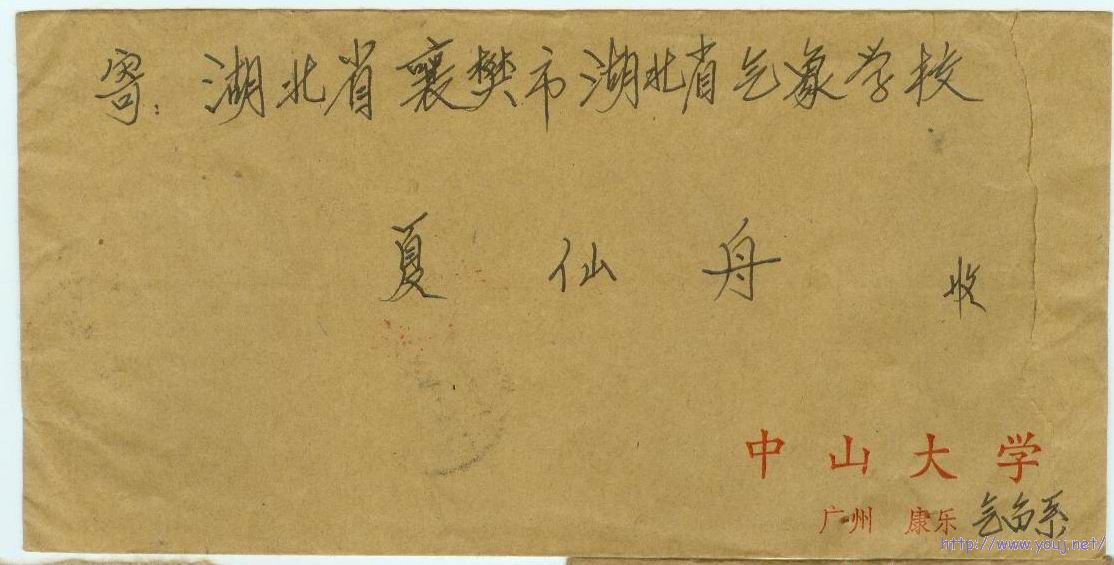 寄：湖北省襄樊市湖北省气象学校
夏仙舟 收
中山大学
广州 康乐 气象系
http://www.youj.net/